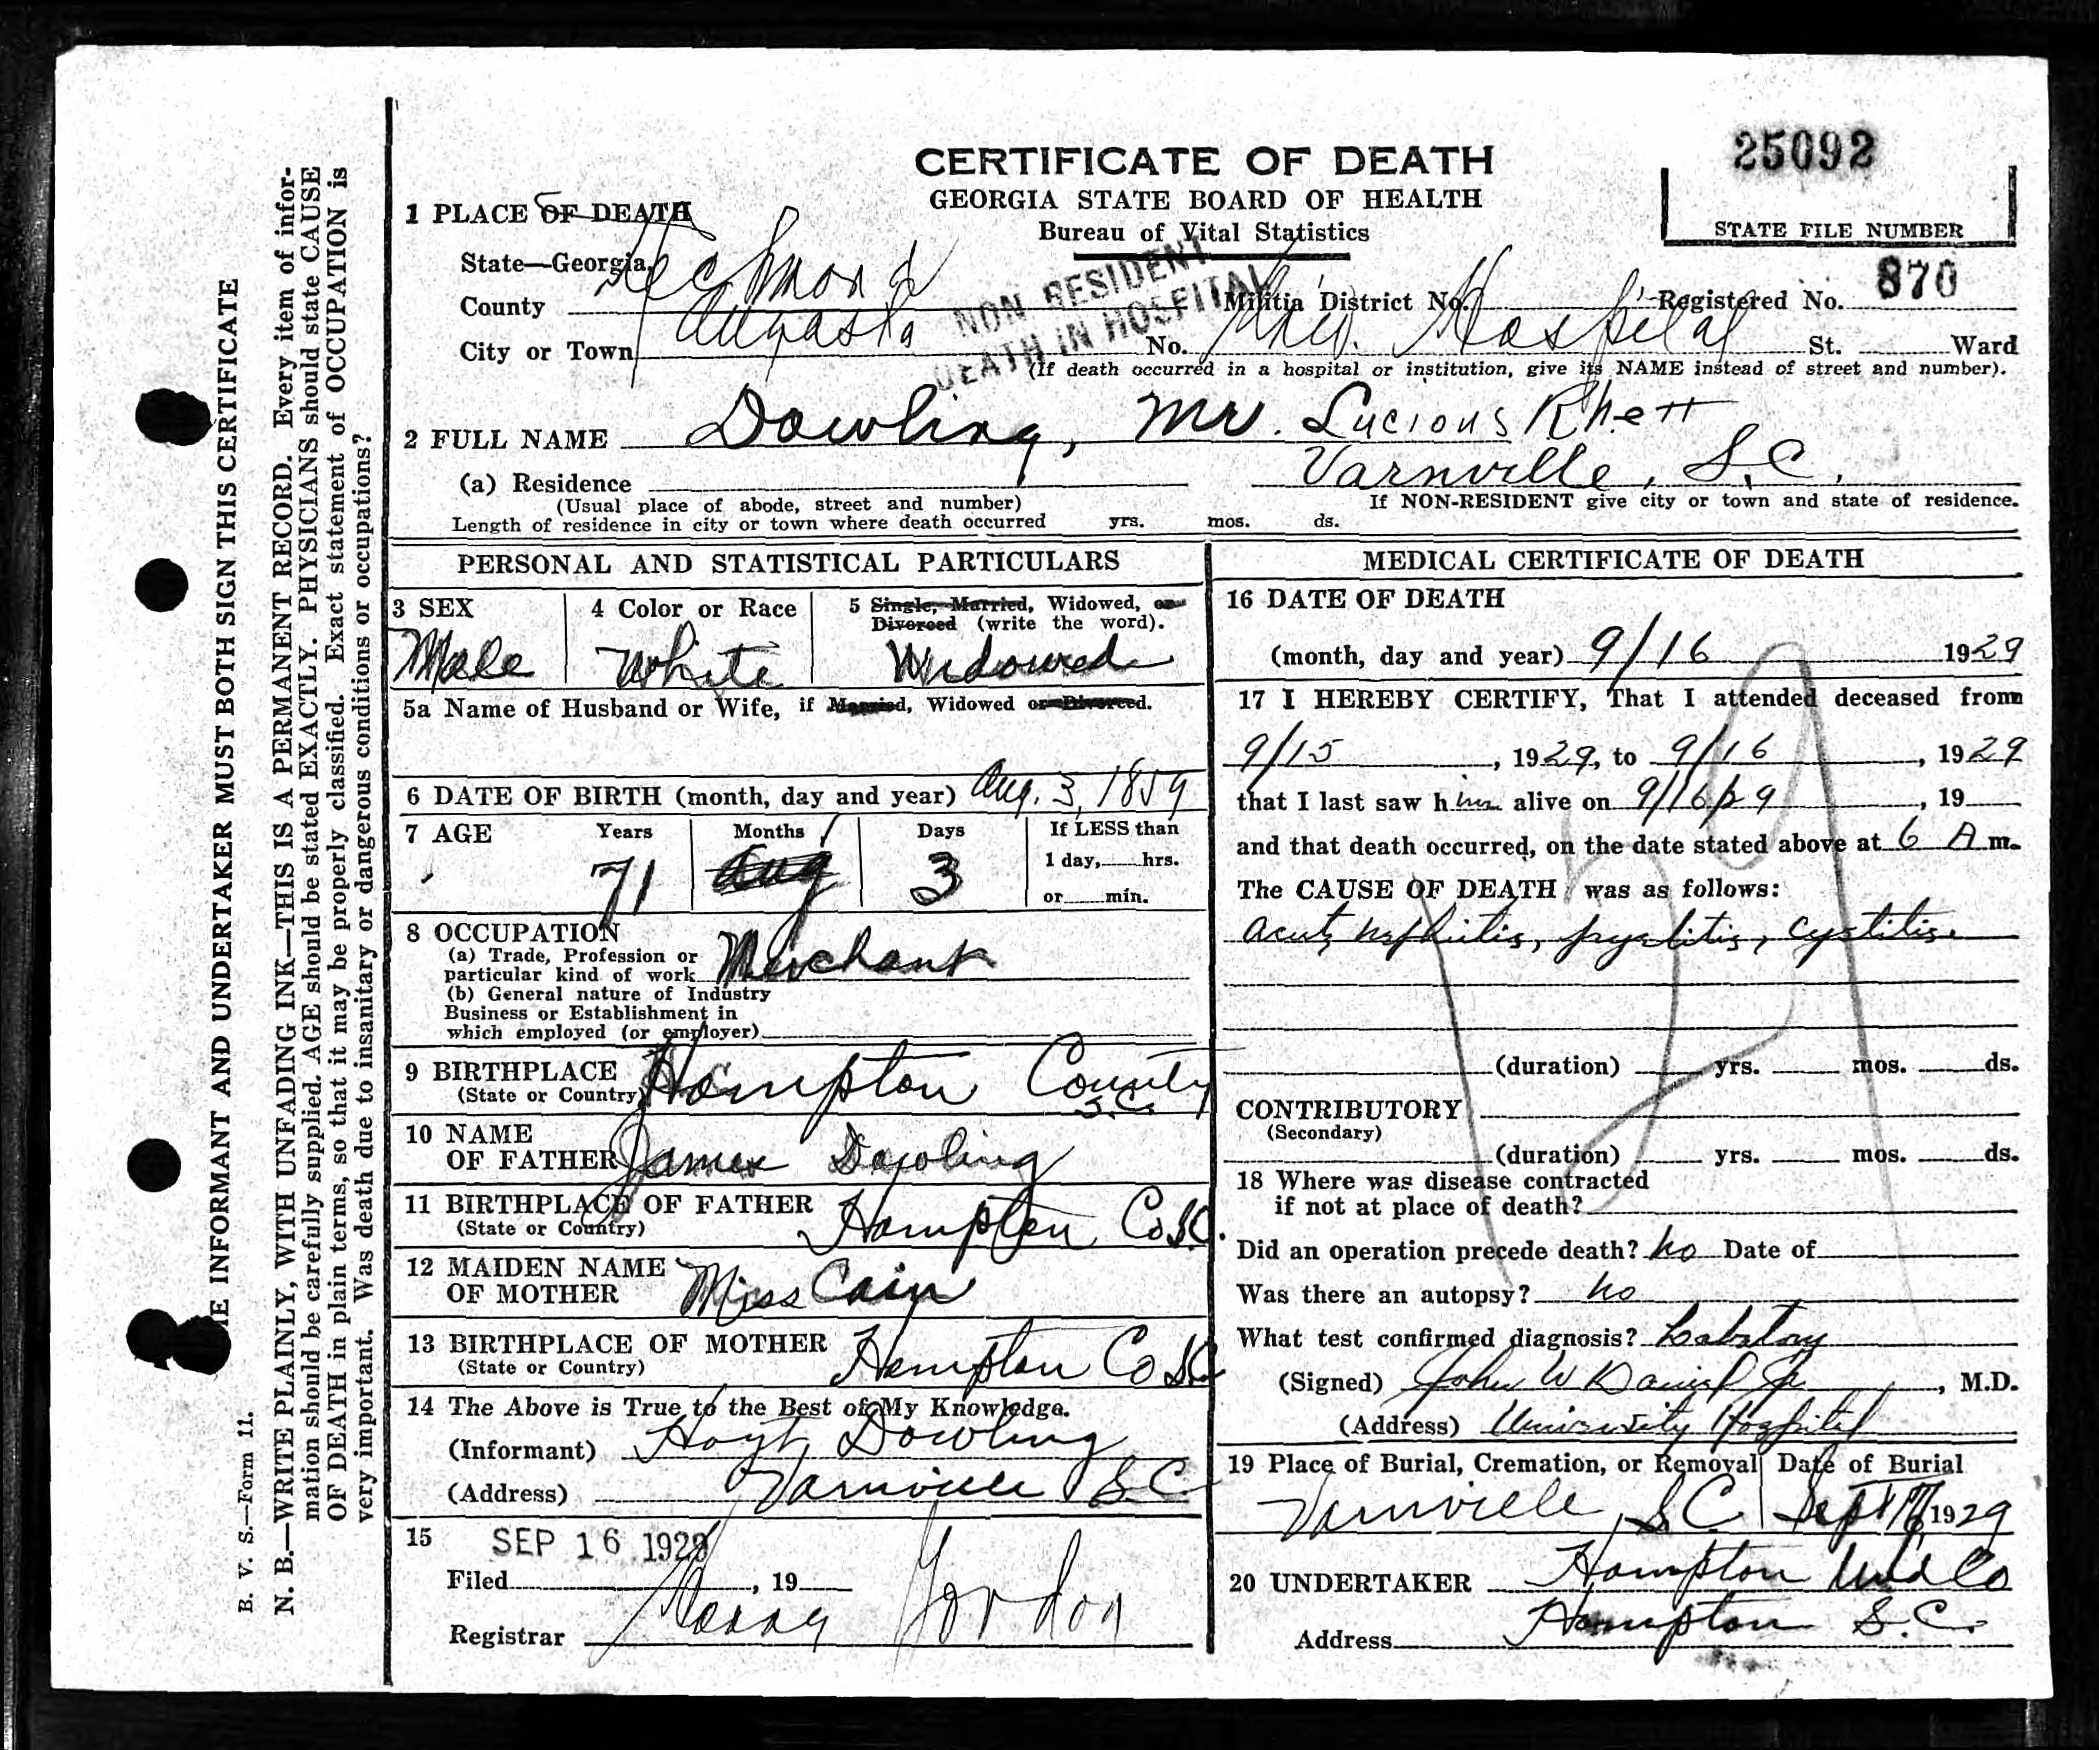 25092
CERTIFICATE OF DEATH
GEORGIA STATE BOARD OF HEALTH
Bureau of Vital Statistics
STATE FILE NUMBER
1 PLACE OF DEATH
State—Georgia,
NON RESIDENT
DEATH IN HOSPITAL
County Richmond Militia District No. Registered No. 870
City or Town Augusta No. Univ. Hospital St. Ward
(If death occurred in a hospital or institution, give its NAME instead of street and number).
2 FULL NAME Dowling, Mr. Lucious Rhett
(a) Residence Varnville, S.C.
(Usual place of abode, street and number) If NON-RESIDENT give city or town and state of residence.
Length of residence in city or town where death occurred yrs. mos. ds.
PERSONAL AND STATISTICAL PARTICULARS
3 SEX 4 Color or Race 5 Single, Married, Widowed, or
Divorced (write the word).
Male White Widowed
5a Name of Husband or Wife, if Married, Widowed or Divorced.
6 DATE OF BIRTH (month, day and year) Aug. 3, 1859
7 AGE Years Months Days If LESS than
1 day, hrs.
71 Aug 3
or min.
8 OCCUPATION
(a) Trade, Profession or
particular kind of work Merchant
(b) General nature of Industry
Business or Establishment in
which employed (or employer)
9 BIRTHPLACE Hampton County
(State or Country) S.C.
10 NAME
OF FATHER James Dowling
11 BIRTHPLACE OF FATHER Hampton Co S.C.
(State or Country)
12 MAIDEN NAME
OF MOTHER Miss Cain
13 BIRTHPLACE OF MOTHER Hampton Co S.C.
(State or Country)
14 The Above is True to the Best of My Knowledge.
(Informant) Hoyt Dowling
(Address) Varnville S.C.
15 SEP 16 1929
Filed , 19
Registrar Gordon
MEDICAL CERTIFICATE OF DEATH
16 DATE OF DEATH
(month, day and year) 9/16 1929
17 I HEREBY CERTIFY, That I attended deceased from
9/15 , 1929, to 9/16 , 1929
that I last saw him alive on 9/16/29 , 19
and that death occurred, on the date stated above at 6 A m.
The CAUSE OF DEATH was as follows:
acute nephritis, pyelitis, cystitis.
(duration) yrs. mos. ds.
CONTRIBUTORY
(Secondary)
(duration) yrs. mos. ds.
18 Where was disease contracted
if not at place of death?
Did an operation precede death? no Date of
Was there an autopsy? no
What test confirmed diagnosis?
(Signed) John W Daniel Jr , M.D.
(Address) University Hospital
19 Place of Burial, Cremation, or Removal Date of Burial
Varnville, S.C. Sept 1929
20 UNDERTAKER Hampton Und Co
Address Hampton S.C.
B. V. S.—Form 11.
THE INFORMANT AND UNDERTAKER MUST BOTH SIGN THIS CERTIFICATE
N. B.—WRITE PLAINLY, WITH UNFADING INK—THIS IS A PERMANENT RECORD. Every item of infor-
mation should be carefully supplied. AGE should be stated EXACTLY. PHYSICIANS should state CAUSE
OF DEATH in plain terms, so that it may be properly classified. Exact statement of OCCUPATION is
very important. Was death due to insanitary or dangerous conditions or occupations?